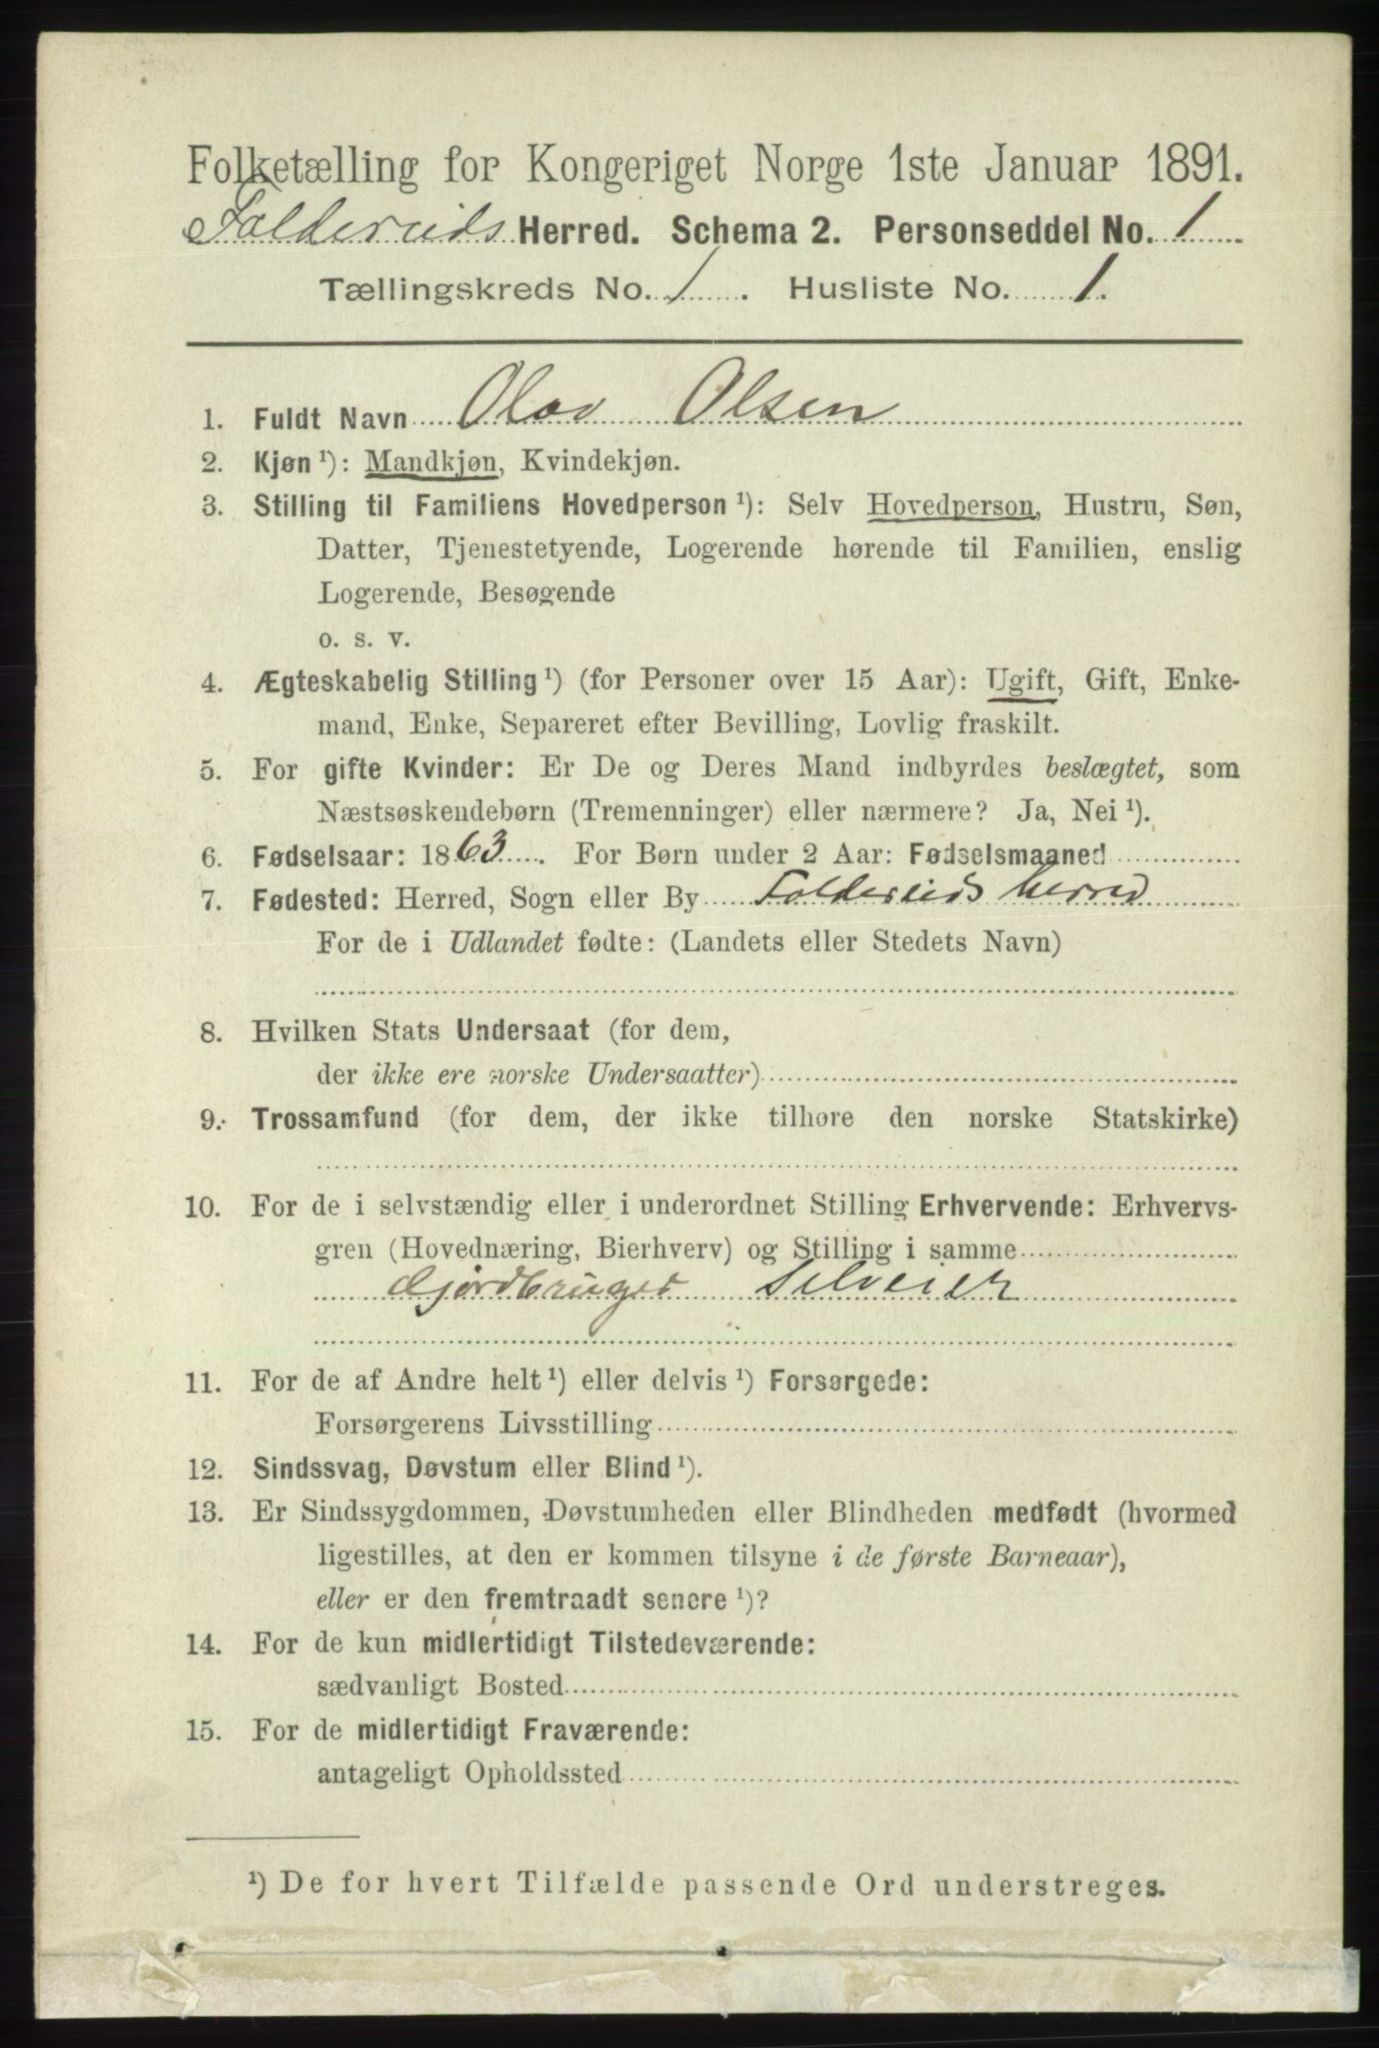 Folketælling for Kongeriget Norge 1ste Januar 1891.
Foldereids Herred. Schema 2. Personseddel No. 1
Tællingskreds No. 1. Husliste No. 1.
1. Fuldt Navn Olav Olsen
2. Kjøn ¹): Mandkjøn, Kvindekjøn.
3. Stilling til Familiens Hovedperson ¹): Selv Hovedperson, Hustru, Søn,
Datter, Tjenestetyende, Logerende hørende til Familien, enslig
Logerende, Besøgende
o. s. v.
4. Ægteskabelig Stilling ¹) (for Personer over 15 Aar): Ugift, Gift, Enke-
mand, Enke, Separeret efter Bevilling, Lovlig fraskilt.
5. For gifte Kvinder: Er De og Deres Mand indbyrdes beslægtet, som
Næstsøskendebørn (Tremenninger) eller nærmere? Ja, Nei ¹).
6. Fødselsaar: 1863. For Børn under 2 Aar: Fødselsmaaned
7. Fødested: Herred, Sogn eller By Foldereids herred
For de i Udlandet fødte: (Landets eller Stedets Navn)
8. Hvilken Stats Undersaat (for dem,
der ikke ere norske Undersaatter)
9. Trossamfund (for dem, der ikke tilhøre den norske Statskirke)
10. For de i selvstændig eller i underordnet Stilling Erhvervende: Erhvervs-
gren (Hovednæring, Bierhverv) og Stilling i samme
Gjordbruger Selveier
11. For de af Andre helt ¹) eller delvis ¹) Forsørgede:
Forsørgerens Livsstilling
12. Sindssvag, Døvstum eller Blind ¹).
13. Er Sindssygdommen, Døvstumheden eller Blindheden medfødt (hvormed
ligestilles, at den er kommen tilsyne i de første Barneaar),
eller er den fremtraadt senere ¹)?
14. For de kun midlertidigt Tilstedeværende:
sædvanligt Bosted
15. For de midlertidigt Fraværende:
antageligt Opholdssted
¹) De for hvert Tilfælde passende Ord understreges.